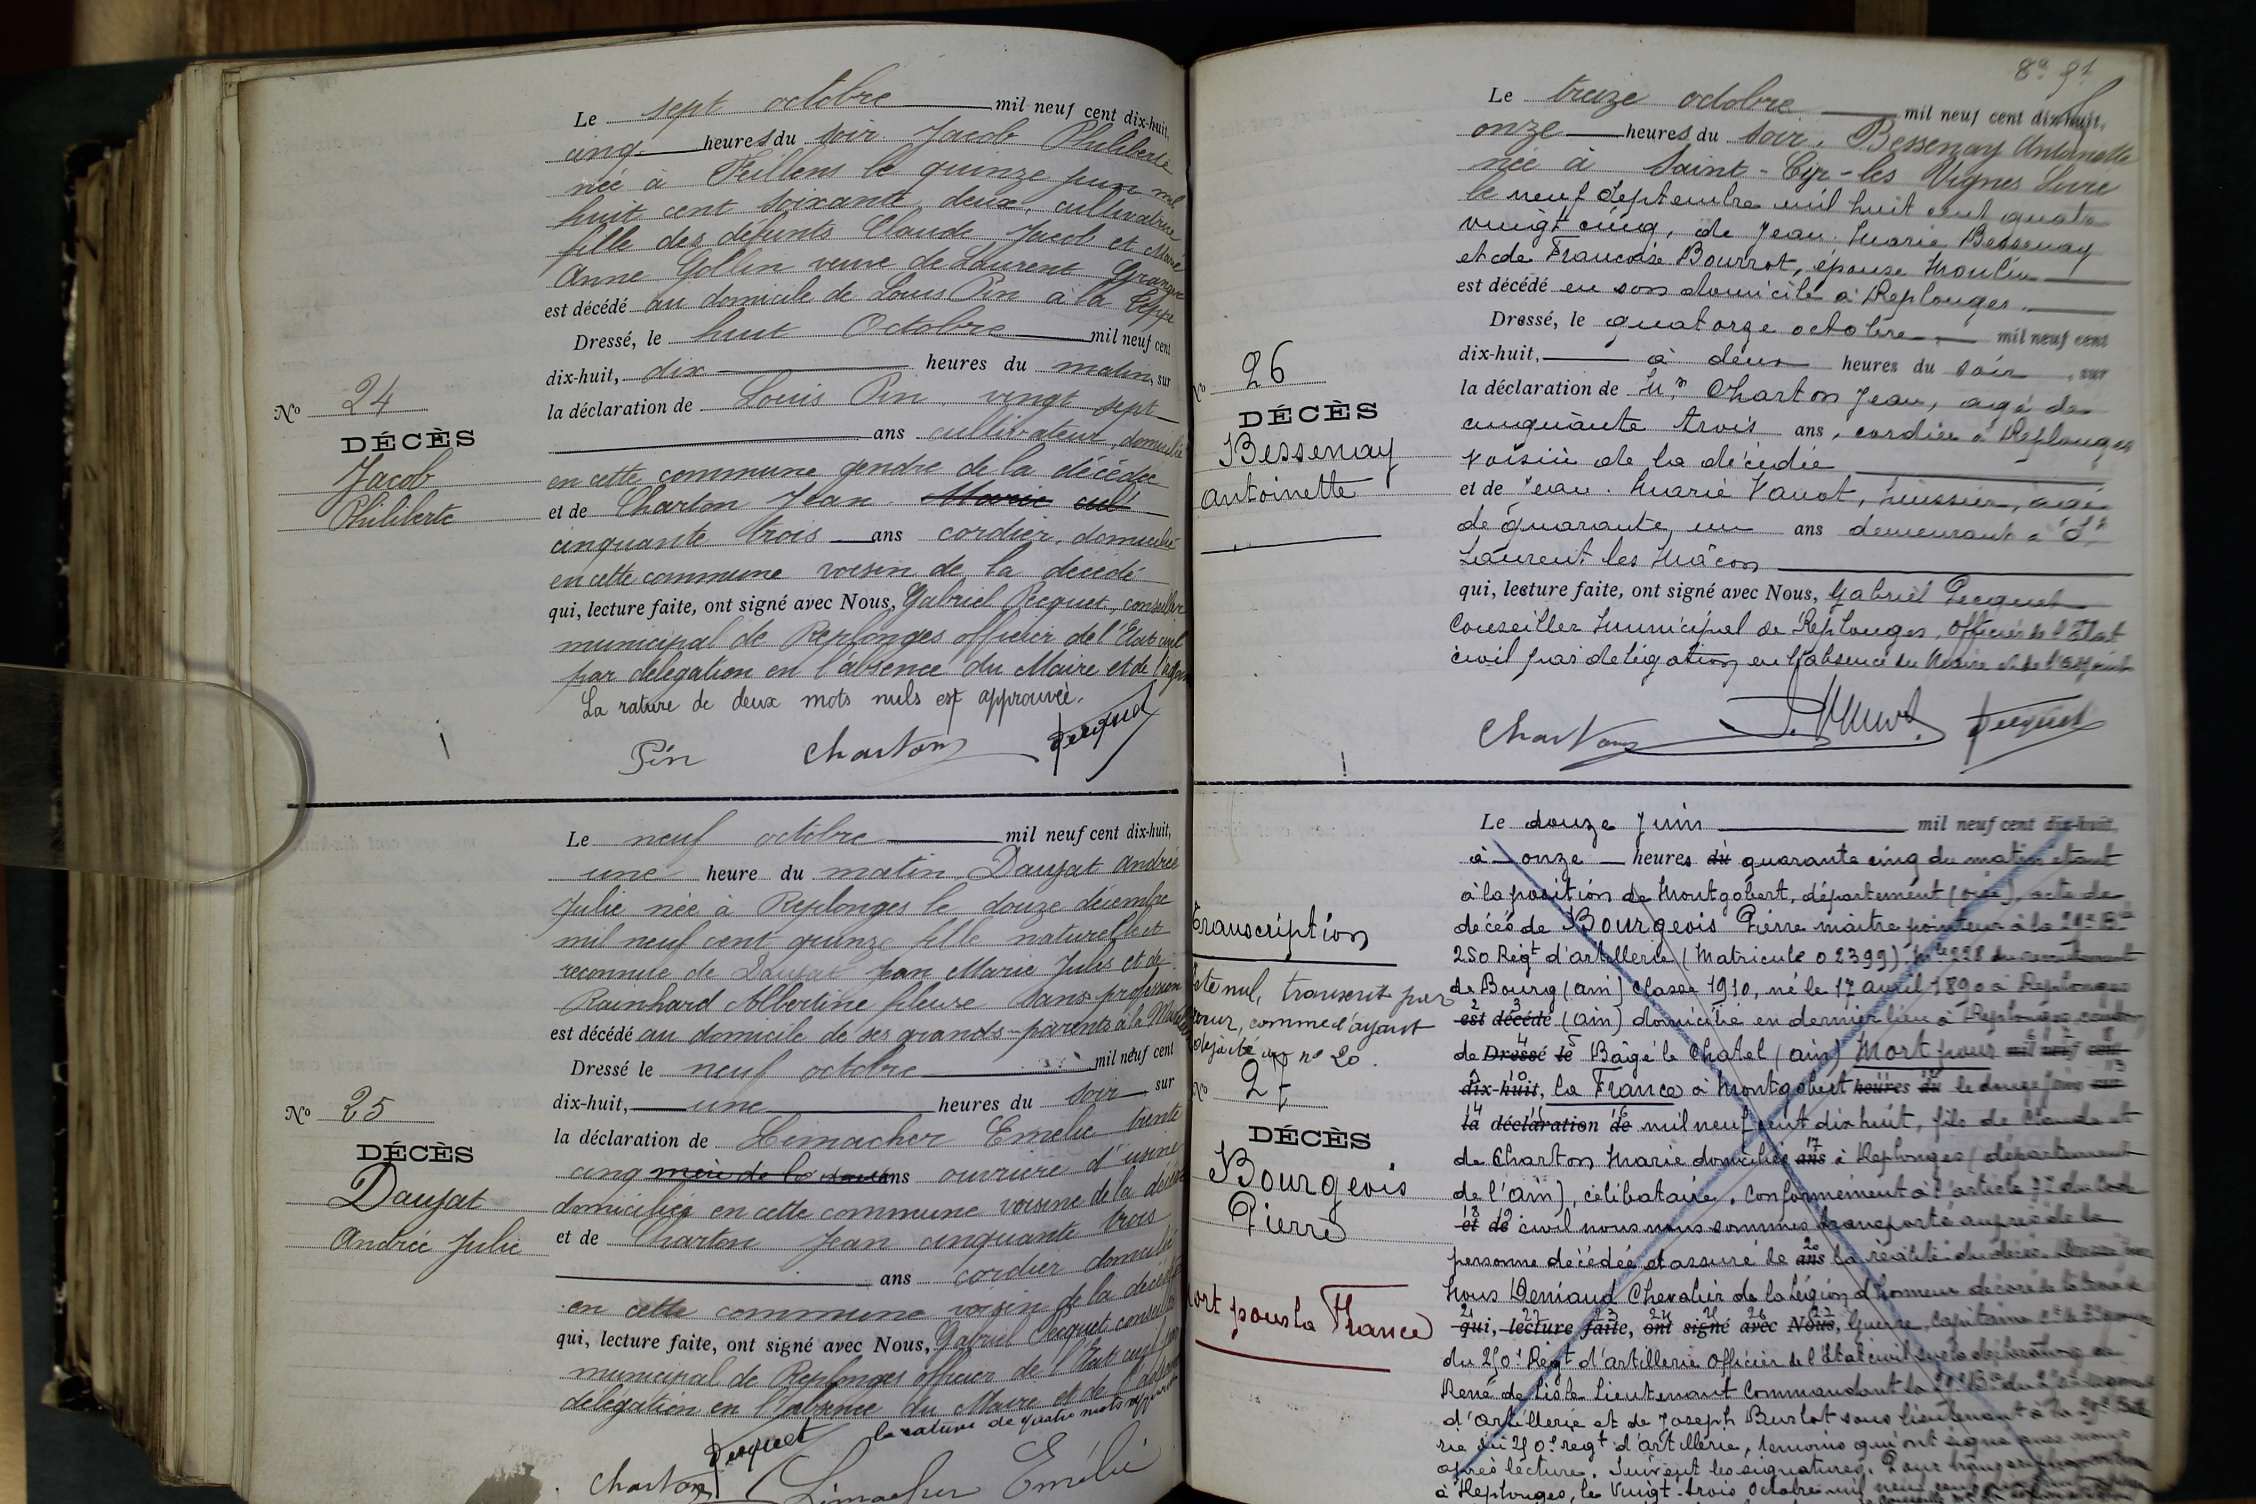 Le sept octobre mil neuf cent dix-huit,
cinq heures du soir. Jacob Philiberte
née à Feillens le quinze juin mil
huit cent soixante deux, cultivatrice
fille des défunts Claude Jacob et Marie
Anne Gollin veuve de Laurent Granger
est décédé au domicile de Louis Pin à la
Dressé, le huit Octobre mil neuf cent
dix-huit, dix heures du matin, sur
la déclaration de Louis Pin vingt sept
ans cultivateur, domicilié
en cette commune gendre de la décédée
et de Charton Jean Marie cult
cinquante trois ans cordier, domicilié
en cette commune voisin de la décédé
qui, lecture faite, ont signé avec Nous, Gabriel Pecquet, conseiller
municipal de Replonges officier de l'Etat civil
par délégation en l'absence du Maire et de l'adjoint
La rature de deux mots nuls est approuvée.
Pin Charton Pecquet
No 24
DÉCÈS
Jacob
Philiberte
Le neuf octobre mil neuf cent dix-huit,
une heure du matin, Daujat Andrée
Julie née à Replonges le douze décembre
mil neuf cent quinze fille naturelle et
reconnue de Daujat Jean Marie Jules et de
Rainhard Albertine fileuse sans profession
est décédé au domicile de ses grands-parents à la
Dressé le neuf octobre mil neuf cent
dix-huit, une heures du soir sur
la déclaration de Limacher Emelie trente
cinq ans ouvrière d'usine
domiciliée en cette commune voisine de la décédée
et de Charton Jean cinquante trois
ans cordier domicilié
en cette commune voisin de la décédée
qui, lecture faite, ont signé avec Nous, Gabriel Pecquet conseiller
municipal de Replonges officier de l'Etat civil par
délégation en l'absence du Maire et de l'adjoint
la rature de quatre mots
Pecquet
Charton Limacher Emélie
No 25
DÉCÈS
Daujat
Andrée Julie
Le treize octobre mil neuf cent dix-huit,
onze heures du soir, Bessenay Antoinette
née à Saint-Cyr-les Vignes Loire
le neuf Septembre mil huit cent quatre
vingt cinq, de Jean Marie Bessenay
et de Francoise Bourrot, épouse Moulin
est décédé en son domicile à Replonges.
Dressé, le quatorze octobre mil neuf cent
dix-huit, à deux heures du soir, sur
la déclaration de Mr Charton Jean, agé de
cinquante trois ans, cordier à Replonges
voisin de la décédée
et de Jean Marie Vauot, huissier, agé
de quarante un ans demeurant à St
Laurent les Mâcon
qui, lecture faite, ont signé avec Nous, Gabriel Pecquet
Conseiller Municipal de Replonges, Officier de l'Etat
civil par délégation en l'absence du Maire et de l'adjoint
Charton Pecquet
No 26
DÉCÈS
Bessenay
Antoinette
Le douze Juin mil neuf cent dix-huit,
à onze heures du quarante cinq du matin étant
à la position de Montgobert, département (oise), acte de
décès de Bourgeois Pierre maitre pointeur à la 29e Bie
250 Régt d'artillerie (Matricule 02399), No 228 du recrutement
de Bourg (ain) classe 1910, né le 17 avril 1890 à Replonges
est décédé (ain) domicilié en dernier lieu à Replonges canton
de Dressé le Bâgé le Chatel (ain) Mort pour mil neuf cent
dix-huit, la France à Montgobert heures du le douze juin sur
la déclaration de mil neuf cent dix huit, fils de Claude et
de Charton Marie domiciliés ans à Replonges (département
de l'ain), célibataire. Conformément à l'article 77 du Code
et de civil nous nous sommes transporté auprès de la
personne décédée et assuré de ans la réalité du décès. Dressé par
Nous Deniaud Chevalier de la Légion d'honneur décoré de la Croix de
qui, lecture faite, ont signé avec Nous, Guerre, Capitaine
du 250e Régt d'artillerie Officier de l'Etat civil sur la déclaration de
René de Liste lieutenant Commandant la 29e Bie du 250e régiment
d'artillerie et de Joseph Burlot sous lieutenant à la 29e Batte
rie du 250e regt d'artillerie, témoins qui ont signé avec nous
après lecture. Suivent les signatures.
à Replonges, le Vingt-trois Octobre mil neuf cent
Transcription
Acte nul, transcrit par
erreur, comme l'ayant
déjà été au no 20.
No 27
DÉCÈS
Bourgeois
Pierre
Mort pour la France